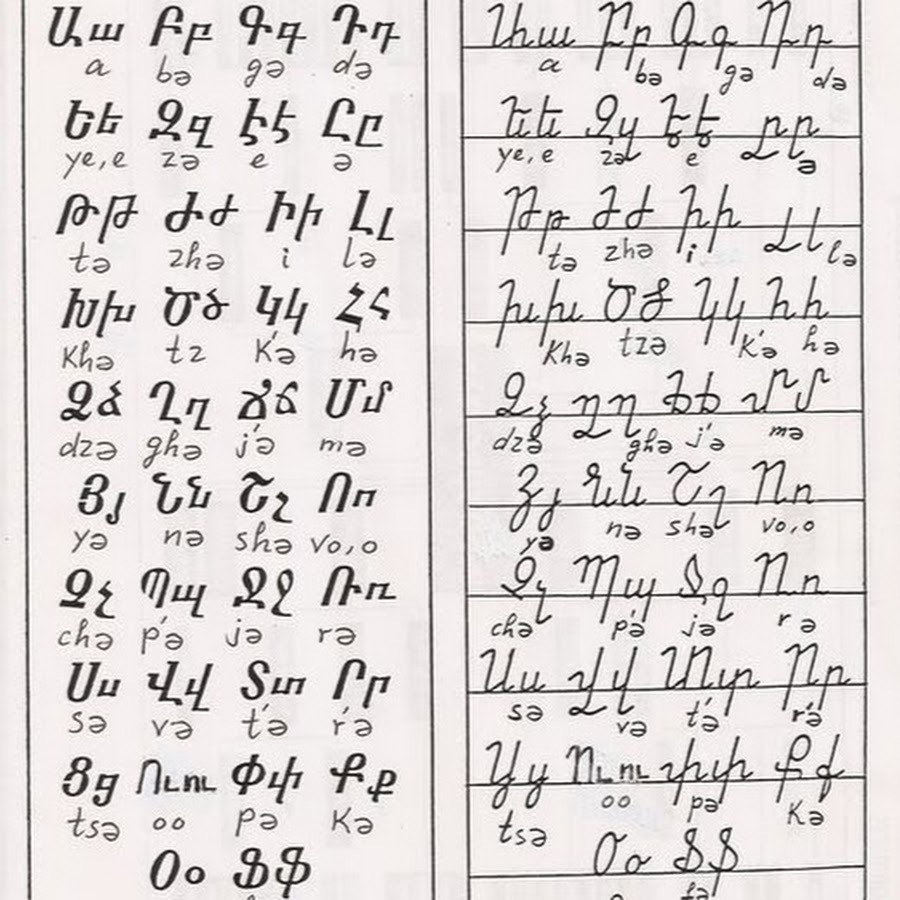 Աա Բբ Գգ Դդ
a bə gə də
Եե Զզ Էէ Ըը
ye,e zə e ə
Թթ Ժժ Իի Լլ
tə zhə i lə
Խխ Ծծ Կկ Հհ
khə tz k'ə hə
Ձձ Ղղ Ճճ Մմ
dzə ghə j'ə mə
Յյ Նն Շշ Ոո
yə nə shə vo,o
Չչ Պպ Ջջ Ռռ
chə p'ə jə rə
Սս Վվ Տտ Րր
sə və t'ə r'ə
Ցց Ուու Փփ Քք
tsə oo pə kə
Օօ Ֆֆ
Աա Բբ Գգ Դդ
a bə gə də
Եե Զզ Էէ Ըը
ye,e zə e ə
Թթ Ժժ Իի Լլ
tə zhə i lə
Խխ Ծծ Կկ Հհ
khə tzə k'ə hə
Ձձ Ղղ Ճճ Մմ
dzə ghə j'ə mə
Յյ Նն Շշ Ոո
yə nə shə vo,o
Չչ Պպ Ջջ Ռռ
chə p'ə jə rə
Սս Վվ Տտ Րր
sə və t'ə r'ə
Ցց Ուու Փփ Քք
tsə oo pə kə
Օօ Ֆֆ
fə